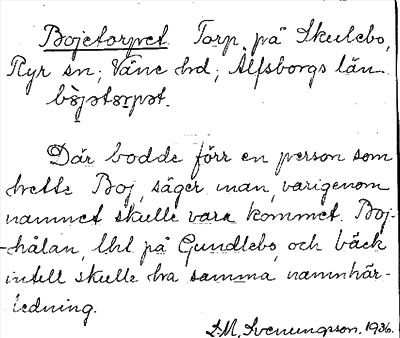 Bojetorpet Torp på Skulebo,
Ryr sn; Väne hd; Älfsborgs län
bòjətɔrpət.
Där bodde förr en person som
hette Boj, säger man, varigenom
namnet skulle vara kommet. Boj-
-hålan, lht på Gundlebo, och bäck
intill skulle ha samma namnhär-
ledning.
D.M. Svenungson. 1936.